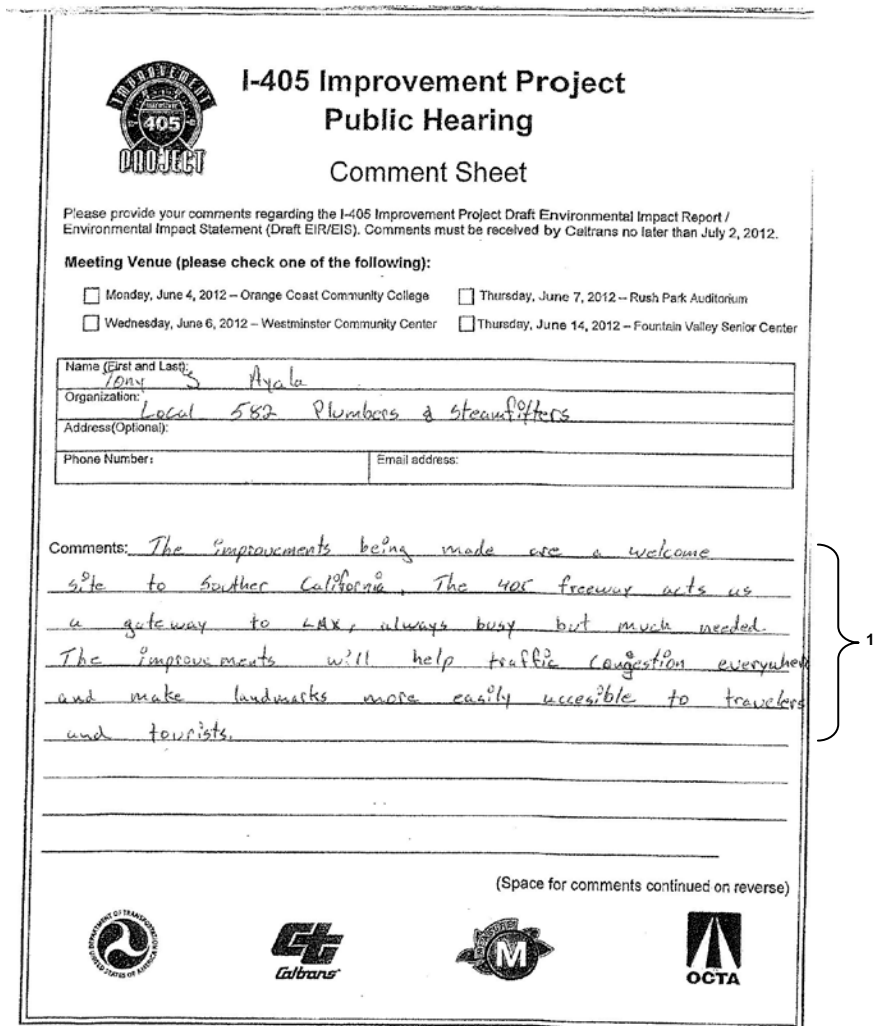 I-405 Improvement Project
Public Hearing
Comment Sheet
IMPROVEMENT
405
PROJECT
Please provide your comments regarding the I-405 Improvement Project Draft Environmental Impact Report /
Environmental Impact Statement (Draft EIR/EIS). Comments must be received by Caltrans no later than July 2, 2012.
Meeting Venue (please check one of the following):
Monday, June 4, 2012 – Orange Coast Community College
Thursday, June 7, 2012 – Rush Park Auditorium
Wednesday, June 6, 2012 – Westminster Community Center
Thursday, June 14, 2012 – Fountain Valley Senior Center
Name (First and Last):
Tony S Ayala
Organization:
Local 582 Plumbers & Steamfitters
Address(Optional):
Phone Number:
Email address:
Comments: The improvements being made are a welcome
site to Souther California. The 405 freeway acts as
a gateway to LAX, always busy but much needed.
The improvements will help traffic congestion everywher
and make landmarks more easily accesible to travelers
and tourists.
1
(Space for comments continued on reverse)
DEPARTMENT OF TRANSPORTATION
UNITED STATES OF AMERICA
Caltrans
MEASURE
M
OCTA